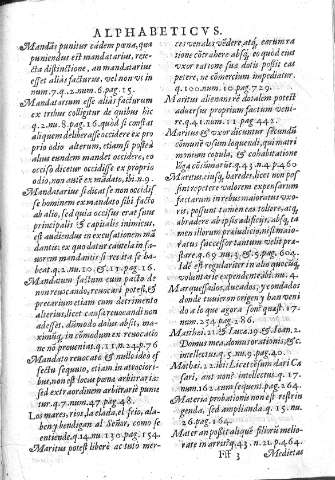 ALPHABETICVS.
Mandãs punitur eadem pœna, qua
puniendus est mandatarius, reie-
cta distinctione, an mandatarius
esset aliàs facturus, vel non vt in
num.7.q.2.num.6.pag.15.
Mandatorum esse aliàs facturum
ex tribus colligitur de quibus hic
q.2.nu.8.pag.16. quod si constat
aliquem deliberasse occidere ex pro
prio odio alterum, etiam si postea
alius eundem mandet occidere, eo
occiso dicetur occidisse ex proprio
odio, non autē ex mãdato, ibi.n.9.
Mandatarius si dicat se non occidis
se hominem ex mandato sibi facto
ab alio, sed quia occisus erat suus
principalis & capitalis inimicus,
est audiendus in excusationem mã
dantis: ex quo datur cautela in fa-
uorem mandantis si res ita se ha-
beat.q.2.nu.10.& 11.pag.16.
Mandatum factum cum pacto de
non reuocando, reuocari potest, &
precarium etiam cum detrimento
alterius, licet causa reuocandi non
adesset, dũmodo dolus absit, ma-
ximus, in cõmodum ex reuocatio
ne nõ proueniat.q.11.n.24.p.76
Mandato reuocato & nullo ideò ef
fectu sequuto, etiam in atrociori-
bus, non est locus pœna arbitraria:
sed extraordinem arbitrariè punie
tur.q.7.num.47.pag.48.
Los mares, rios, la elada, el frio, ala-
ben, y bendigan al Señor, como se
entiende.q.14.nu.130.pag.154.
Maritus potest liberè ac tuto mer-
ces venales vēdere atq; earum ra
tione cõtrahere absq; eo quod eius
vxor ratione suæ dotis possit eas
petere, ne cõmercium impediatur.
q.100.num.10.pag.729.
Maritus alienans rē dotalem potest
aduersus proprium factum veni-
re.q.41.num.11.pag.442.
Maritus & vxor dicuntur secundũ
cõmunē vsum loquendi, qui matri
monium copula, & cohabitatione
ligati cõsumarũt.q.43.n.4.p.460
Maritus, eiusq; haredes, licet non pos
sint repetere valorem expensarum
factarum in rebus maritatus vxo-
ris, possunt tamen eas tollere, atq;
abradere ab ipsis ædificijs, absq; ta
men illorum præiudicio, nisi maio-
ratus successor tantum velit præ-
stare.q.69.nu.3.& 5.pag.604.
Idē est regulariter in alio quocũq;
volente eas expendente ibi.nu.4.
Marquesados, ducados, y condados
donde tuuieron origen y han veni
do a lo que agora son? quæst.17.
num.254.pag.286.
Matthæi.21.& Lucæ.19.& Ioan.2.
Domus mea, domus orationis, &c.
intellectus.q.5.nu.9.pag.40.
Matthæi.22. ibi: Licet censum dari Cæ
sari, ant non? intellectus.q.17.
num.162.cum sequenti.pag.264.
Materia probationis non est restrin
genda, sed amplianda.q.15.nu.
26.pag.164.
Mater an possit aliquē filiorũ melio-
rare in arris?q.43.n.21.p.464.
Fff 3
Medietas